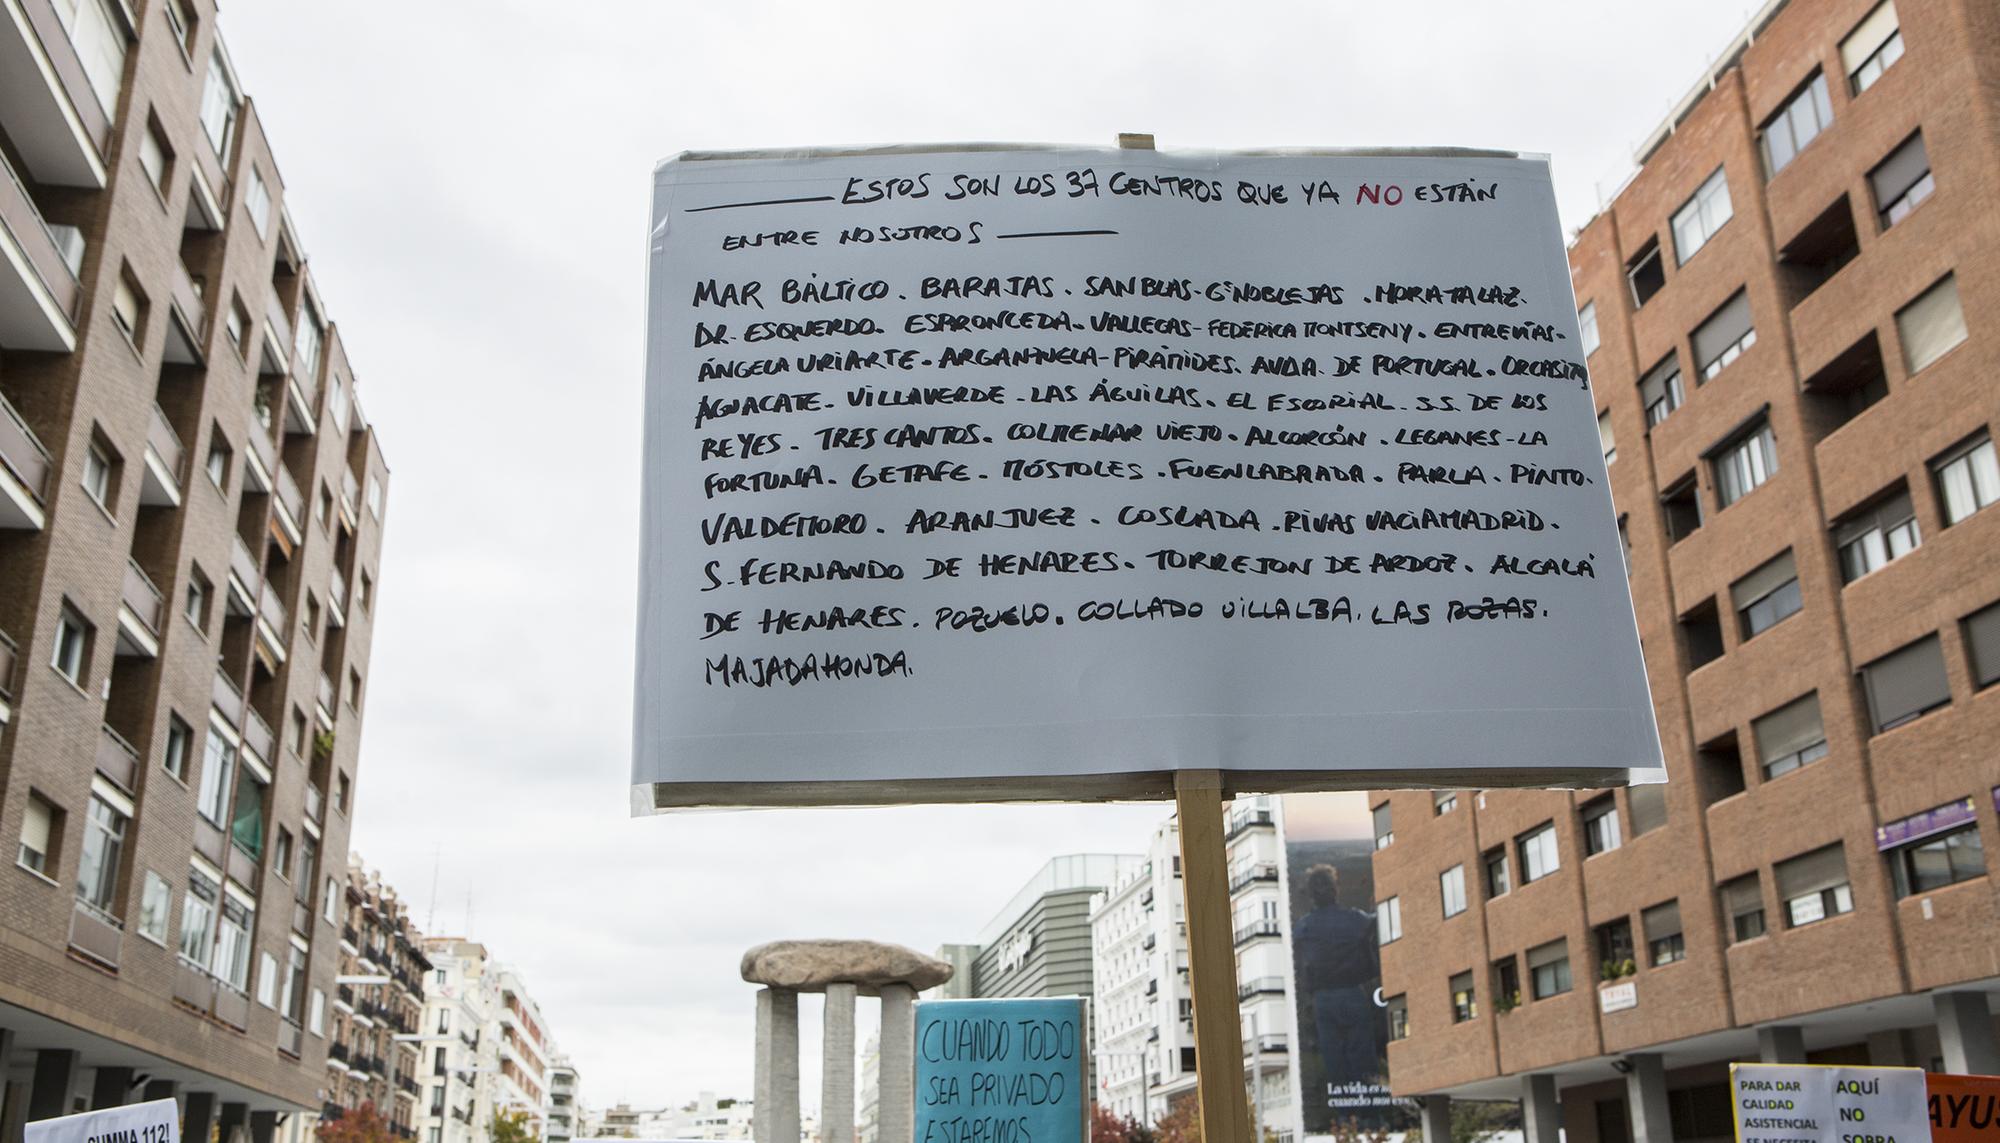 ESTOS SON LOS 37 CENTROS QUE YA NO ESTÁN
ENTRE NOSOTROS
MAR BÁLTICO. BARAJAS. SAN BLAS-GªNOBLEJAS. MORATALAZ.
DR. ESQUERDO. ESPRONCEDA. VALLECAS-FEDERICA MONTSENY. ENTREVÍAS-
ÁNGELA URIARTE. ARGANZUELA-PIRÁMIDES. AVDA. DE PORTUGAL. ORCASITAS
AGUACATE. VILLAVERDE. LAS ÁGUILAS. EL ESCORIAL. S.S. DE LOS
REYES. TRES CANTOS. COLMENAR VIEJO. ALCORCÓN. LEGANES-LA
FORTUNA. GETAFE. MÓSTOLES. FUENLABRADA. PARLA. PINTO.
VALDEMORO. ARANJUEZ. COSLADA. RIVAS VACIAMADRID.
S. FERNANDO DE HENARES. TORREJON DE ARDOZ. ALCALÁ
DE HENARES. POZUELO. COLLADO VILLALBA. LAS ROZAS.
MAJADAHONDA.
CUANDO TODO
SEA PRIVADO
ESTAREMOS
SUMMA 112!
La vida es
cuando
PARA DAR
CALIDAD
ASISTENCIAL
SE NECESITA
AQUÍ
NO
SOBRA
AYUS